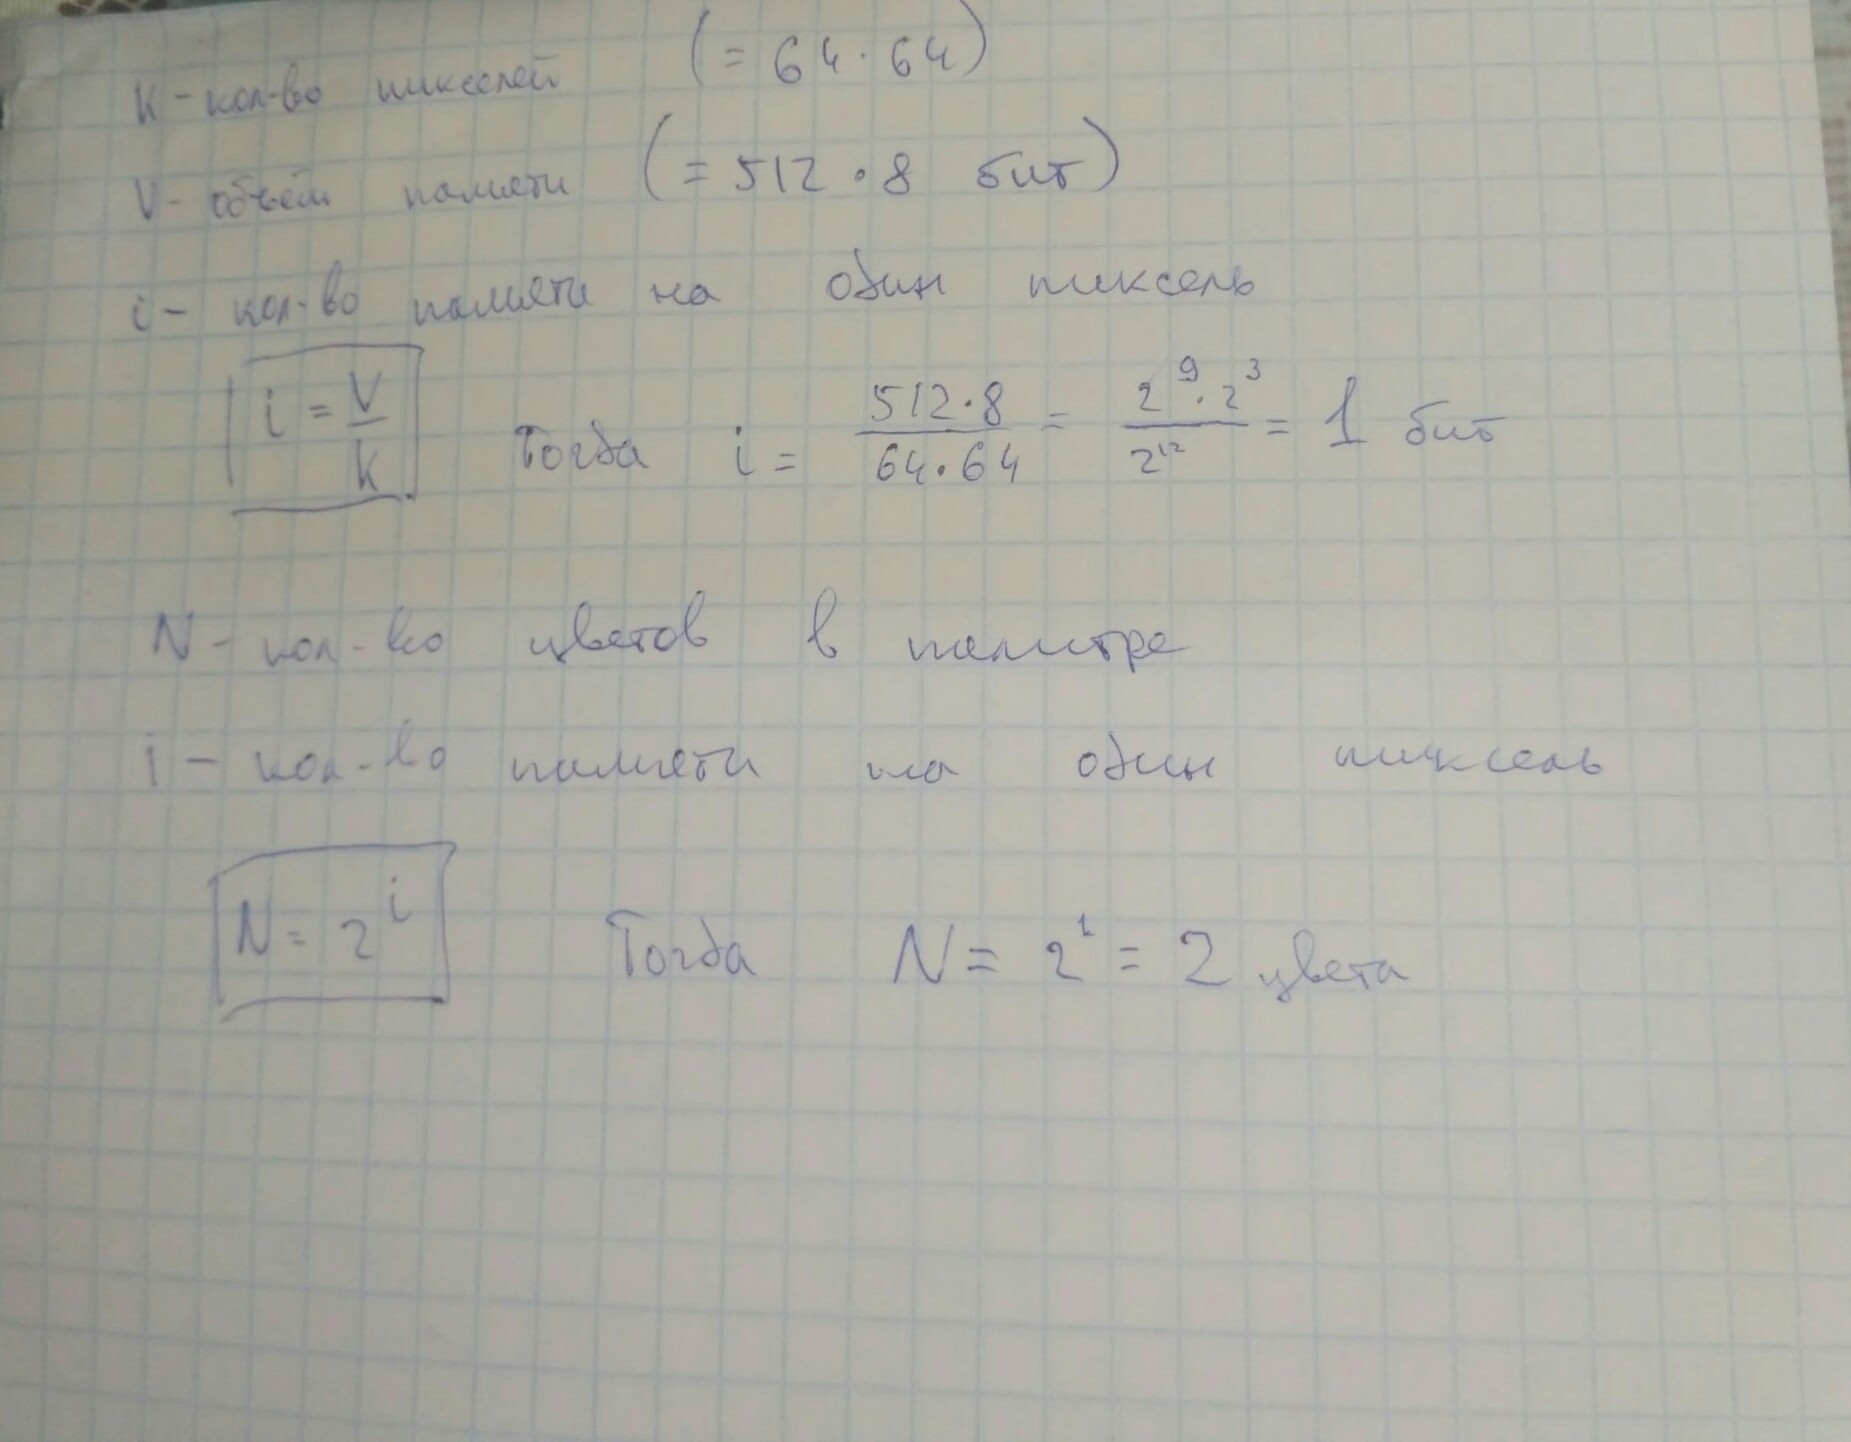 K - кол-во пикселей (= 64 · 64)
V - объём памяти (= 512 · 8 бит)
i - кол-во памяти на один пиксель
i = V/k Тогда i = 512·8/64·64 = 2⁹·2³/2¹² = 1 бит
N - кол-во цветов в палитре
i - кол-во памяти на один пиксель
N = 2ⁱ Тогда N = 2¹ = 2 цвета